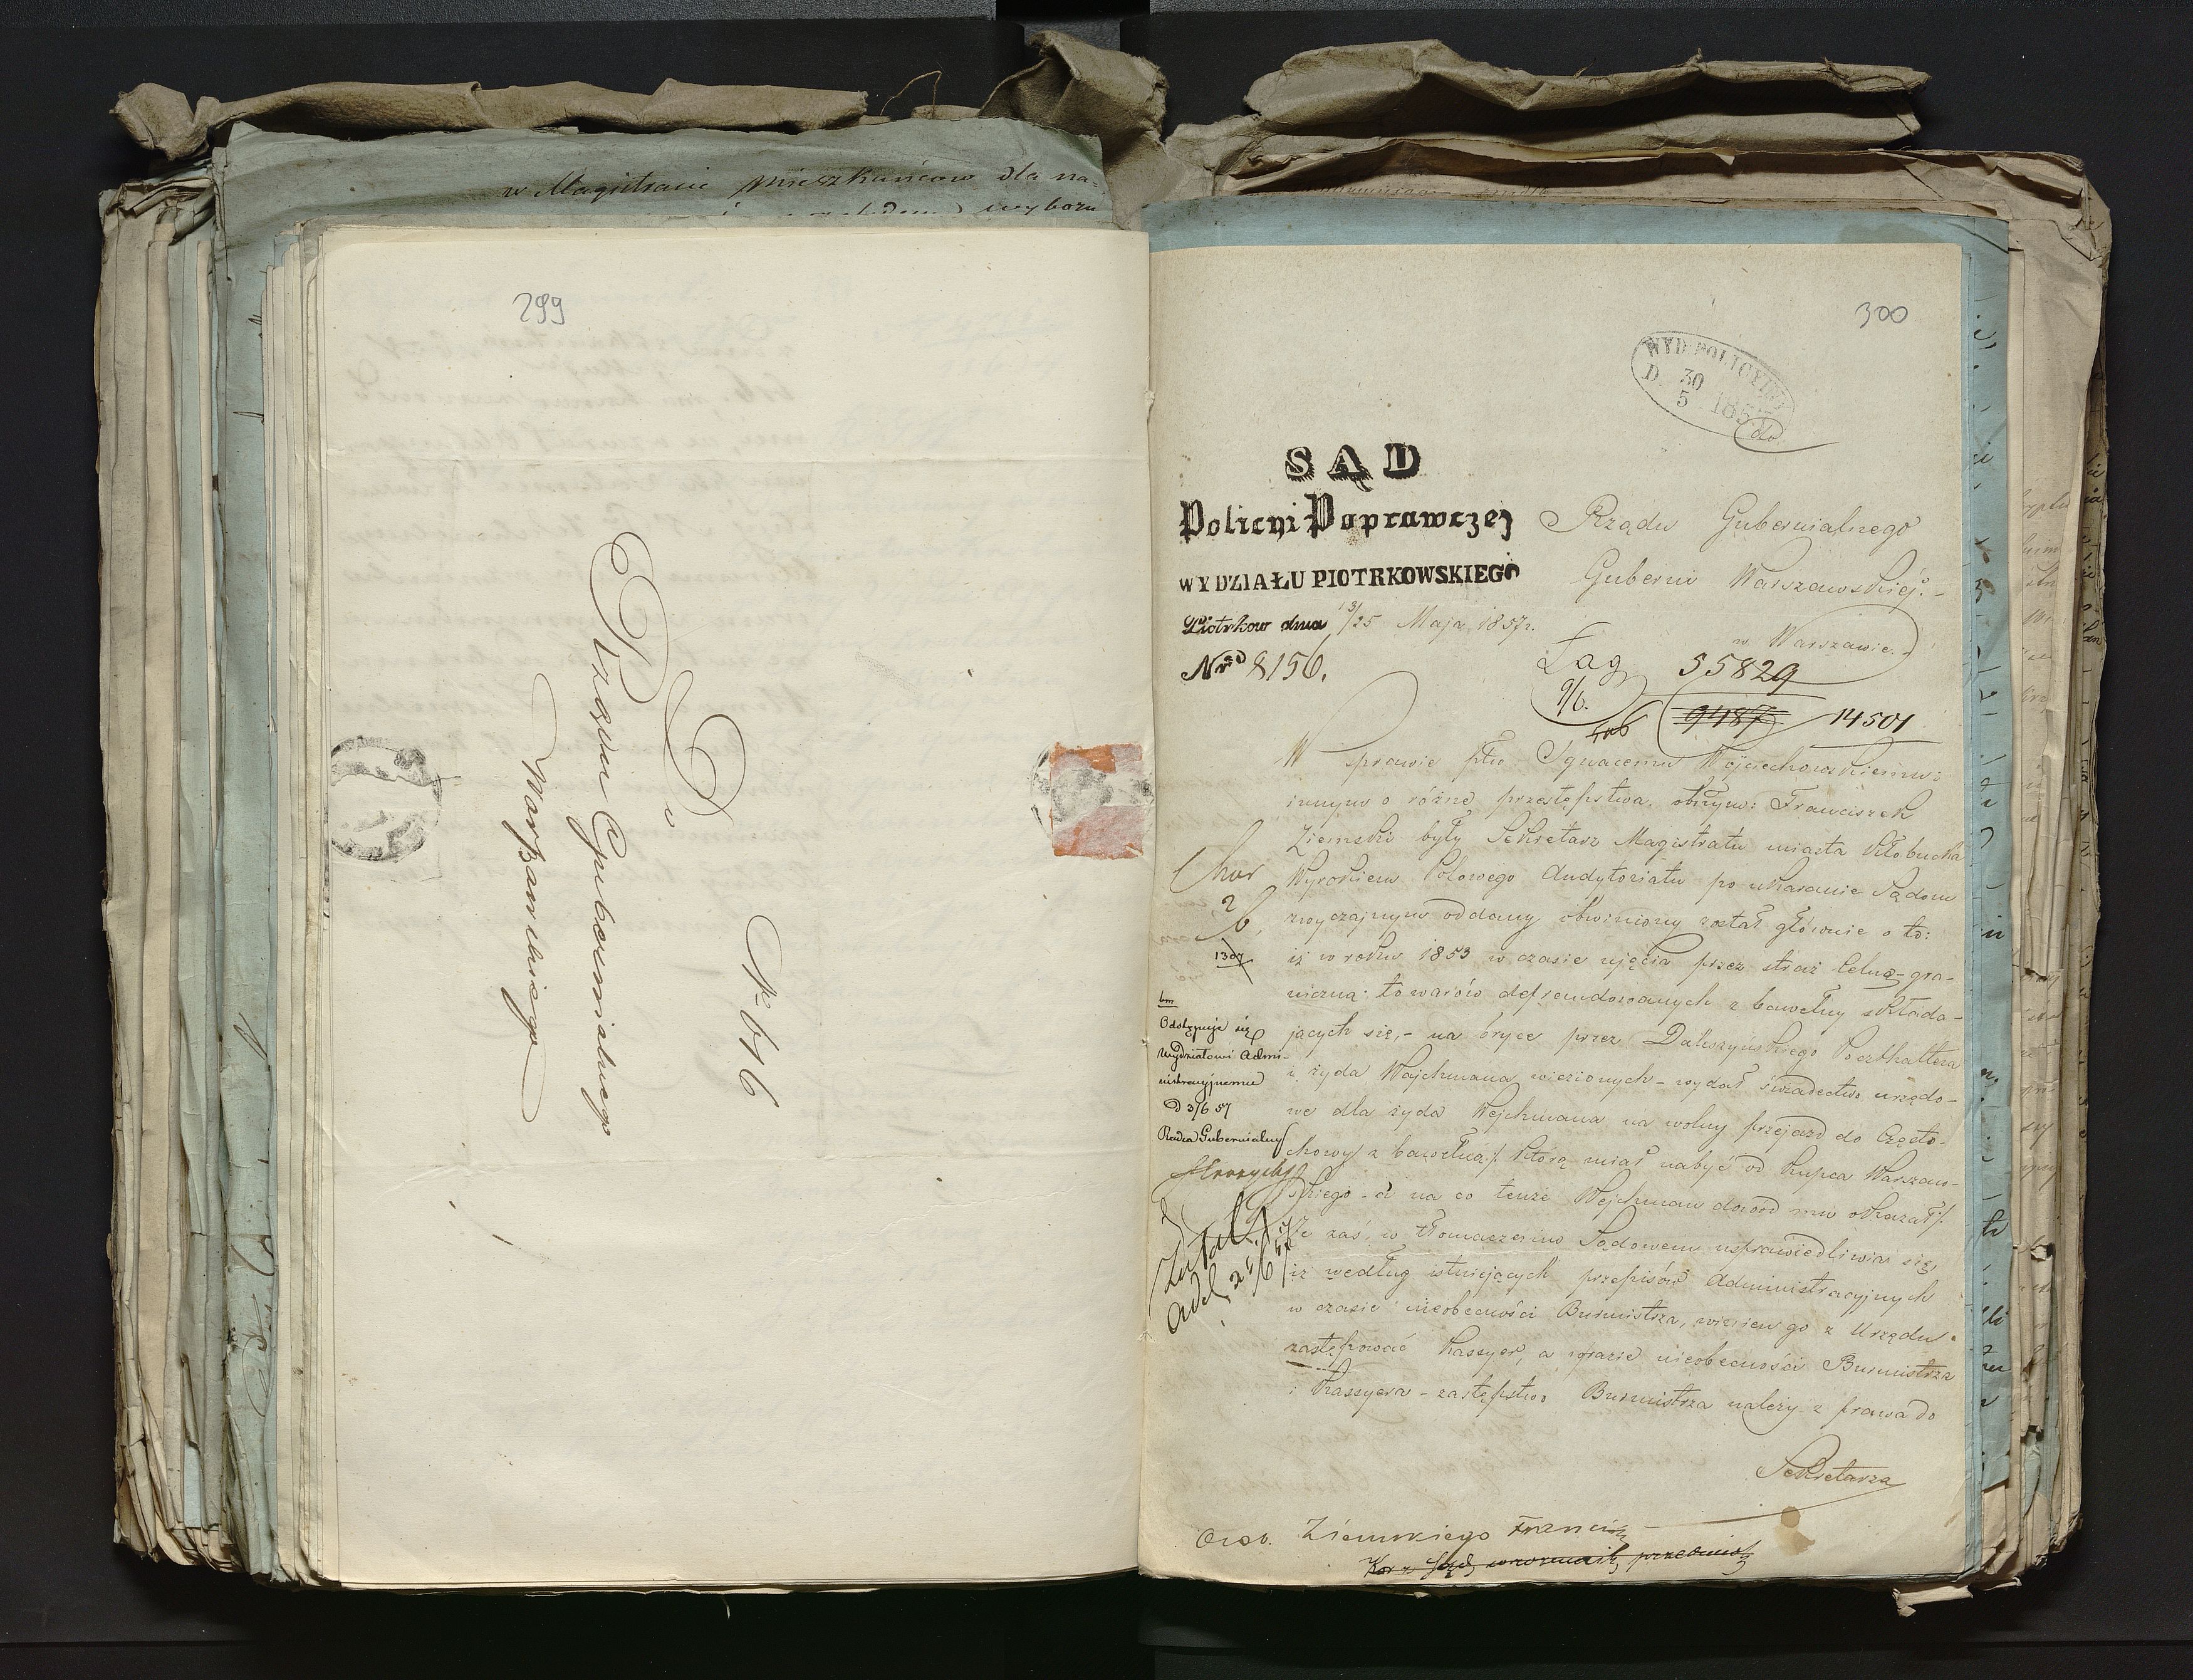 w Magistracie mieszkańców dla na-
wyboru
299
Do
Rządu Gubernialnego
Warszawskiego
No 616
300
WYD. POLICYJNY
D. 30
5 185
do
SĄD
Policyi Poprawczej
WYDZIAŁU PIOTRKOWSKIEGO
Piotrków dnia 13/25 Maja 1857 r.
Nr 8156.
Rządu Gubernialnego
Guberni Warszawskiéj.-
w Warszawie.-
Zag
9/6.
55829
9487 14501
W sprawie ptko Ignacemu Wojciechowskiemu i
innym o różne przestępstwa, obżym: Franciszek
Ziemski były Sekretarz Magistratu miasta Kłobucka
Wyrokiem Polowego Audytoriatu po ukaranie Sądom
zwyczajnym oddany obwiniony został głównie o to:
iż w roku 1853 w czasie ujęcia przez straż Celną-gra-
niczną: towarów defraudowanych z bawełny składa-
jących się,- na bryce przez Poczthaltera
i żyda Wajchmana wiezionych - wydał świadectwo urzędo-
we dla żyda Wejchmana na wolny przejazd do Często-
chowy z bawełną/: którą miał nabyć od kupca Warszaw-
skiego - a na co tenże Wejchman dowód mu okazał:/.
że zaś, w tłomaczeniu Sądowem usprawiedliwia się,
iż według istniejących przepisów Administracyjnych
w czasie nieobecności Burmistrza, winien go z Urzędu
zastępować Kassyer, a w razie nieobecności Burmistrza
i Kassyera - zastępstwo Burmistrza należy z prawa do
Sekretarza
2
6,
1307
Odstępuje się
Wydziałowi Admi-
nistracyjnemu
D 3/6 57
Radca Gubernialny
Osob. Ziemskiego Francisz